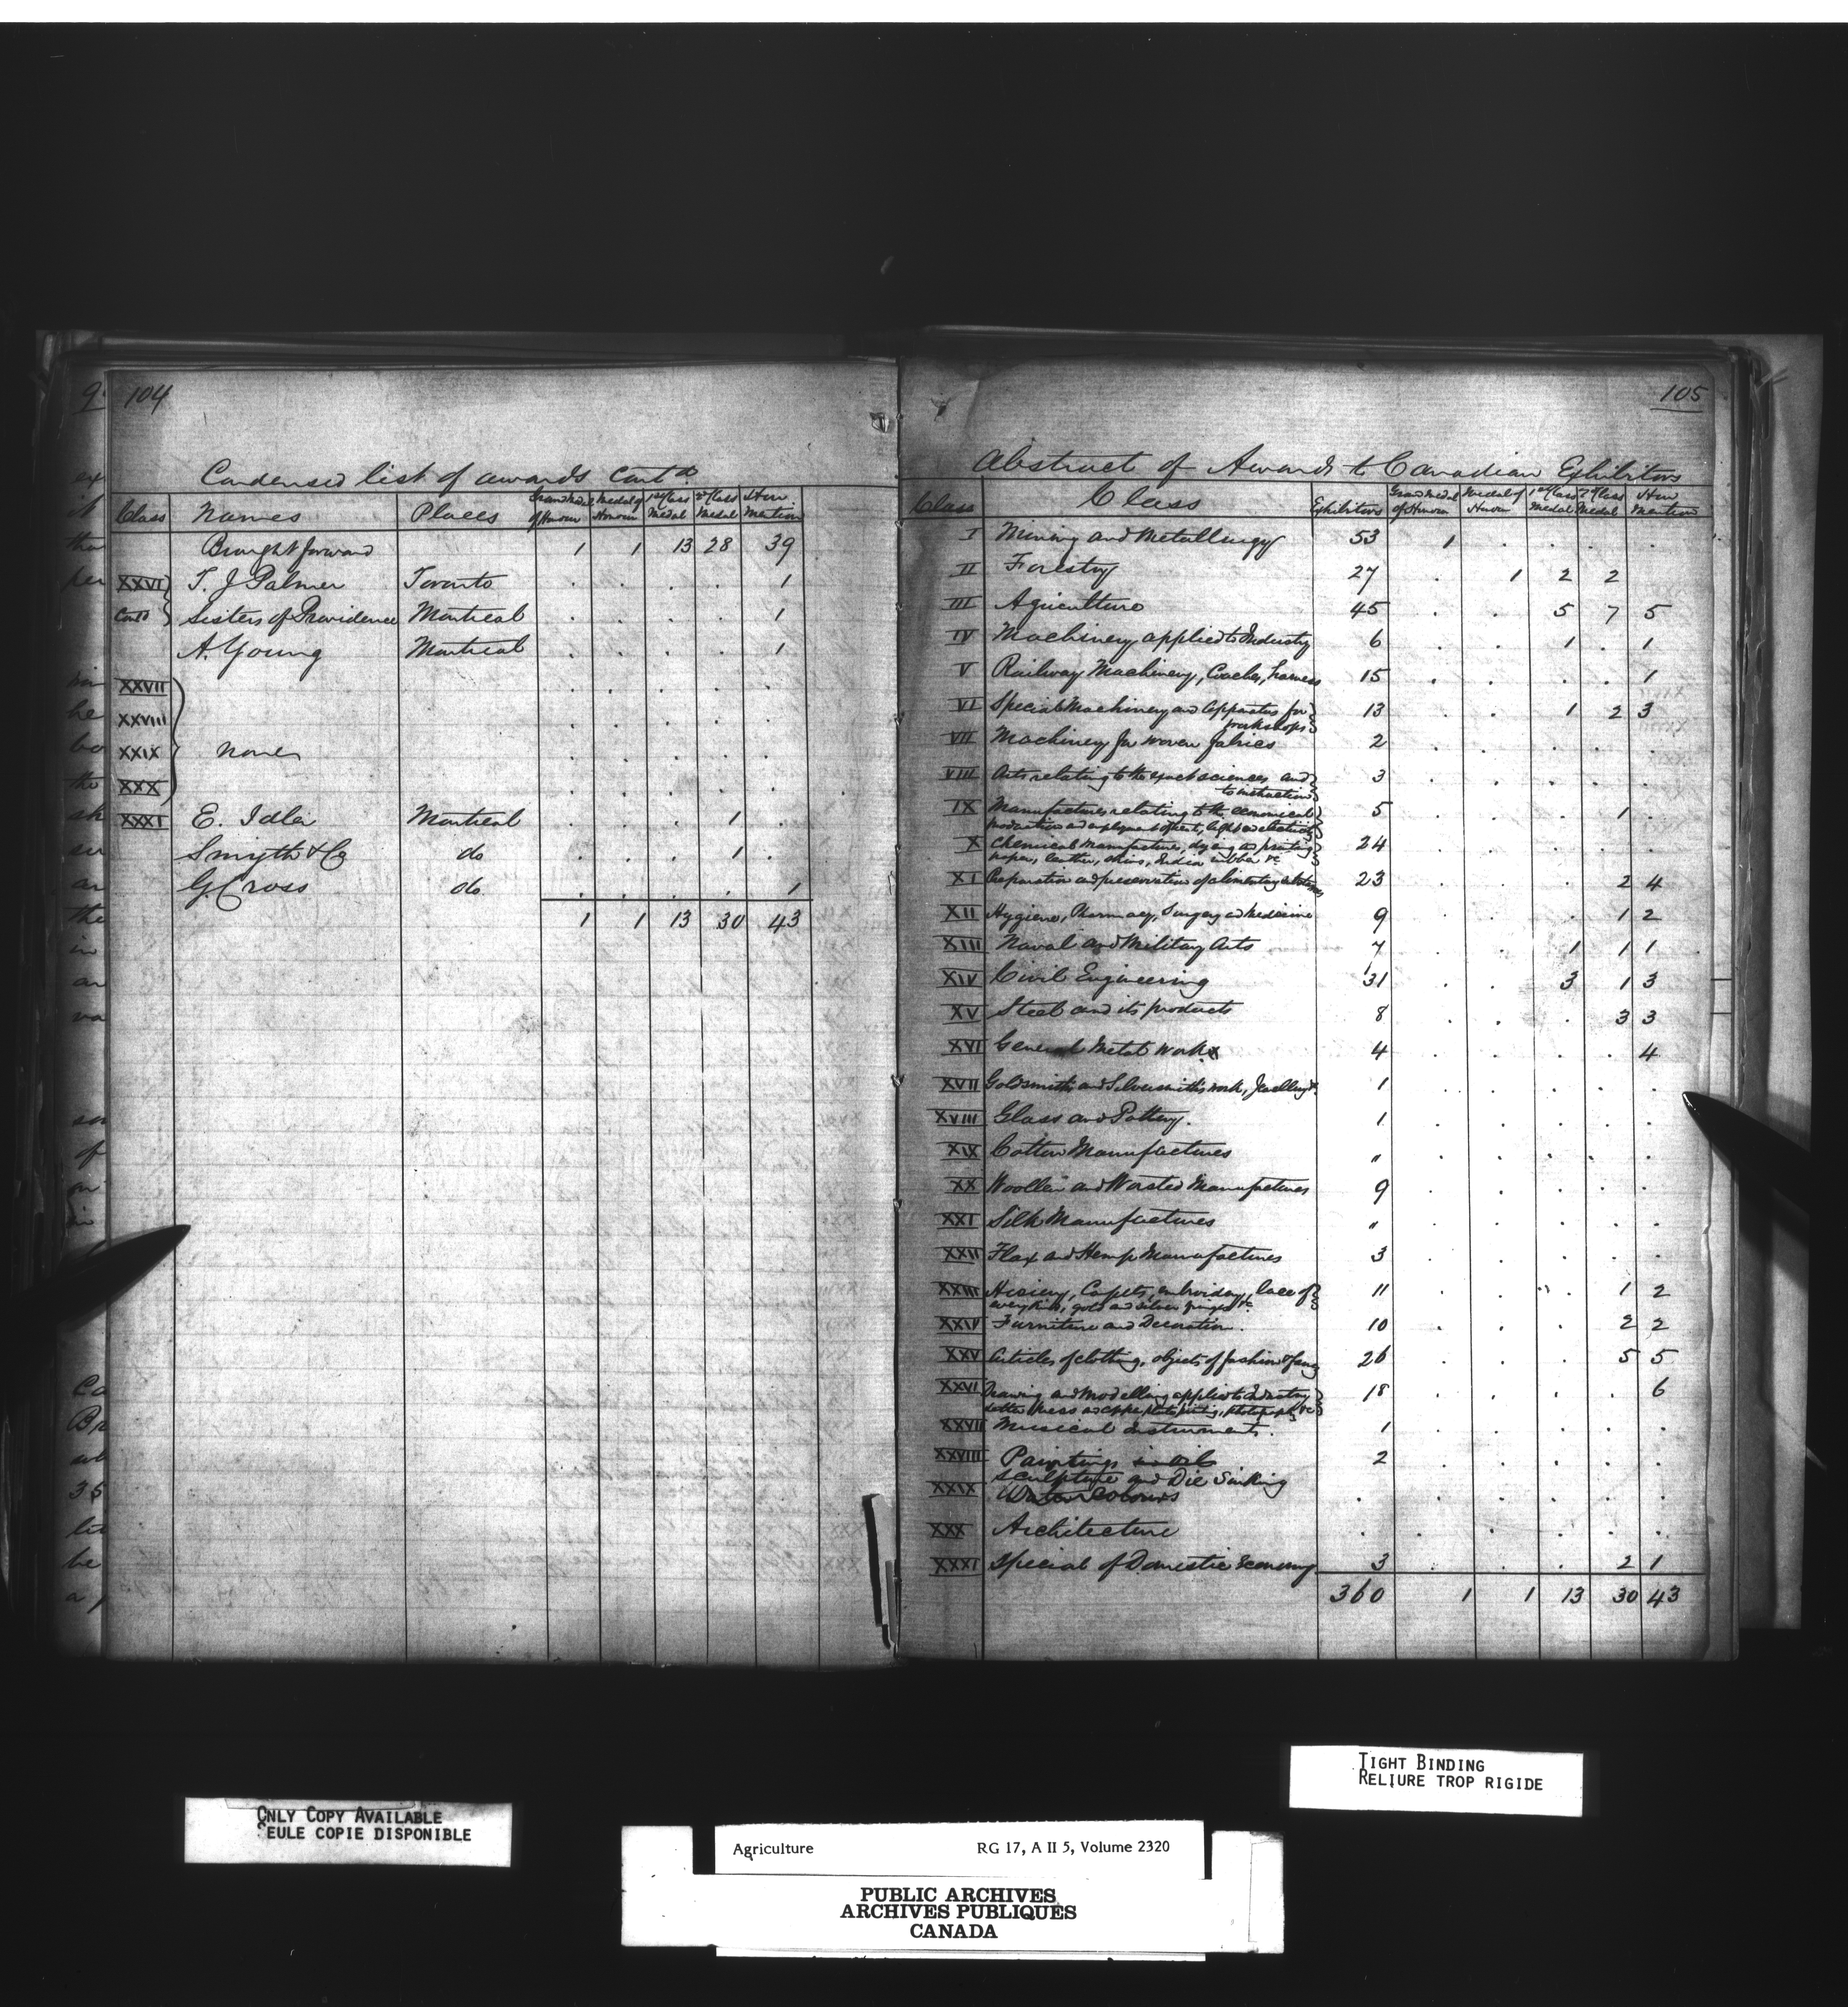 104
Condensed list of awards Cont.d
Class Names Places Grand Medal of Honour Medal of Honour 1st Class Medal 2d Class Medal Hon Mention
Brought forward 1 1 13 28 39
XXVI T. J Palmer Toronto . . . . 1
Cont.d Sisters of Providence Montreal . . . . 1
A. Young Montreal . . . . 1
XXVII . . . . .
XXVIII . . . . .
XXIX None . . . . .
XXX . . . . .
XXXI E. Idler Montreal . . . 1 .
Smyth & Co do . . . 1 .
G. Cross do . . . . 1
1 1 13 30 43
105
Abstract of Awards to Canadian Exhibitors
Class Class Exhibitors Grand Medal of Honour Medal of Honour 1st Class Medal 2 Class Medal Hon Mention
I Mining and Metallurgy 53 1 . . . .
II Forestry 27 . 1 2 2
III Agriculture 45 . . 5 7 5
IV Machinery applied to Industry 6 . . 1 . 1
V Railway Machinery, Coaches, harness 15 . . . . 1
VI Special Machinery and Apparatus for 13 . . 1 2 3
workshops
VII Machinery for woven fabrics 2 . . . . .
VIII Arts relating to the exact sciences and 3 . . . . .
to instruction
IX Manufactures relating to the economical 5 . . . 1 .
production and employment of heat, light and electricity
X Chemical manufactures, dyeing and printing 24 . . . . .
paper, leather, skins, India rubber &c
XI Preparation and preservation of alimentary substances 23 . . . 2 4
XII Hygiene, Pharmacy, Surgery and Medicine 9 . . . 1 2
XIII Naval and Military Arts 7 . . 1 1 1
XIV Civil Engineering 31 . . 3 1 3
XV Steel and its products 8 . . . 3 3
XVI General Metal Works 4 . . . . 4
XVII Goldsmith's and Silversmith's work, Jewellery &c 1 . . . . .
XVIII Glass and Pottery. 1 . . . . .
XIX Cotton Manufactures " . . . . .
XX Woollen and Worsted Manufactures 9 . . . . .
XXI Silk Manufactures " . . . . .
XXII Flax and Hemp Manufactures 3 . . . . .
XXIII Hosiery, Carpets, embroidery, lace of 11 . . . 1 2
every kind, gold and silver fringes &c
XXIV Furniture and Decoration. 10 . . . 2 2
XXV Articles of clothing, objects of fashion & fancy 26 . . . 5 5
XXVI Drawing and Modelling applied to Industry 18 . . . . 6
Letter press and copper plate printing, photography &c
XXVII Musical Instruments. 1 . . . . .
XXVIII Paintings in Oil 2 . . . . .
Sculpture and Die Sinking
XXIX Water Colours . . . . . .
XXX Architecture . . . . . .
XXXI Special of Domestic Economy 3 . . . 2 1
360 1 1 13 30 43
TIGHT BINDING
RELIURE TROP RIGIDE
ONLY COPY AVAILABLE
SEULE COPIE DISPONIBLE
Agriculture RG 17, A II 5, Volume 2320
PUBLIC ARCHIVES
ARCHIVES PUBLIQUES
CANADA